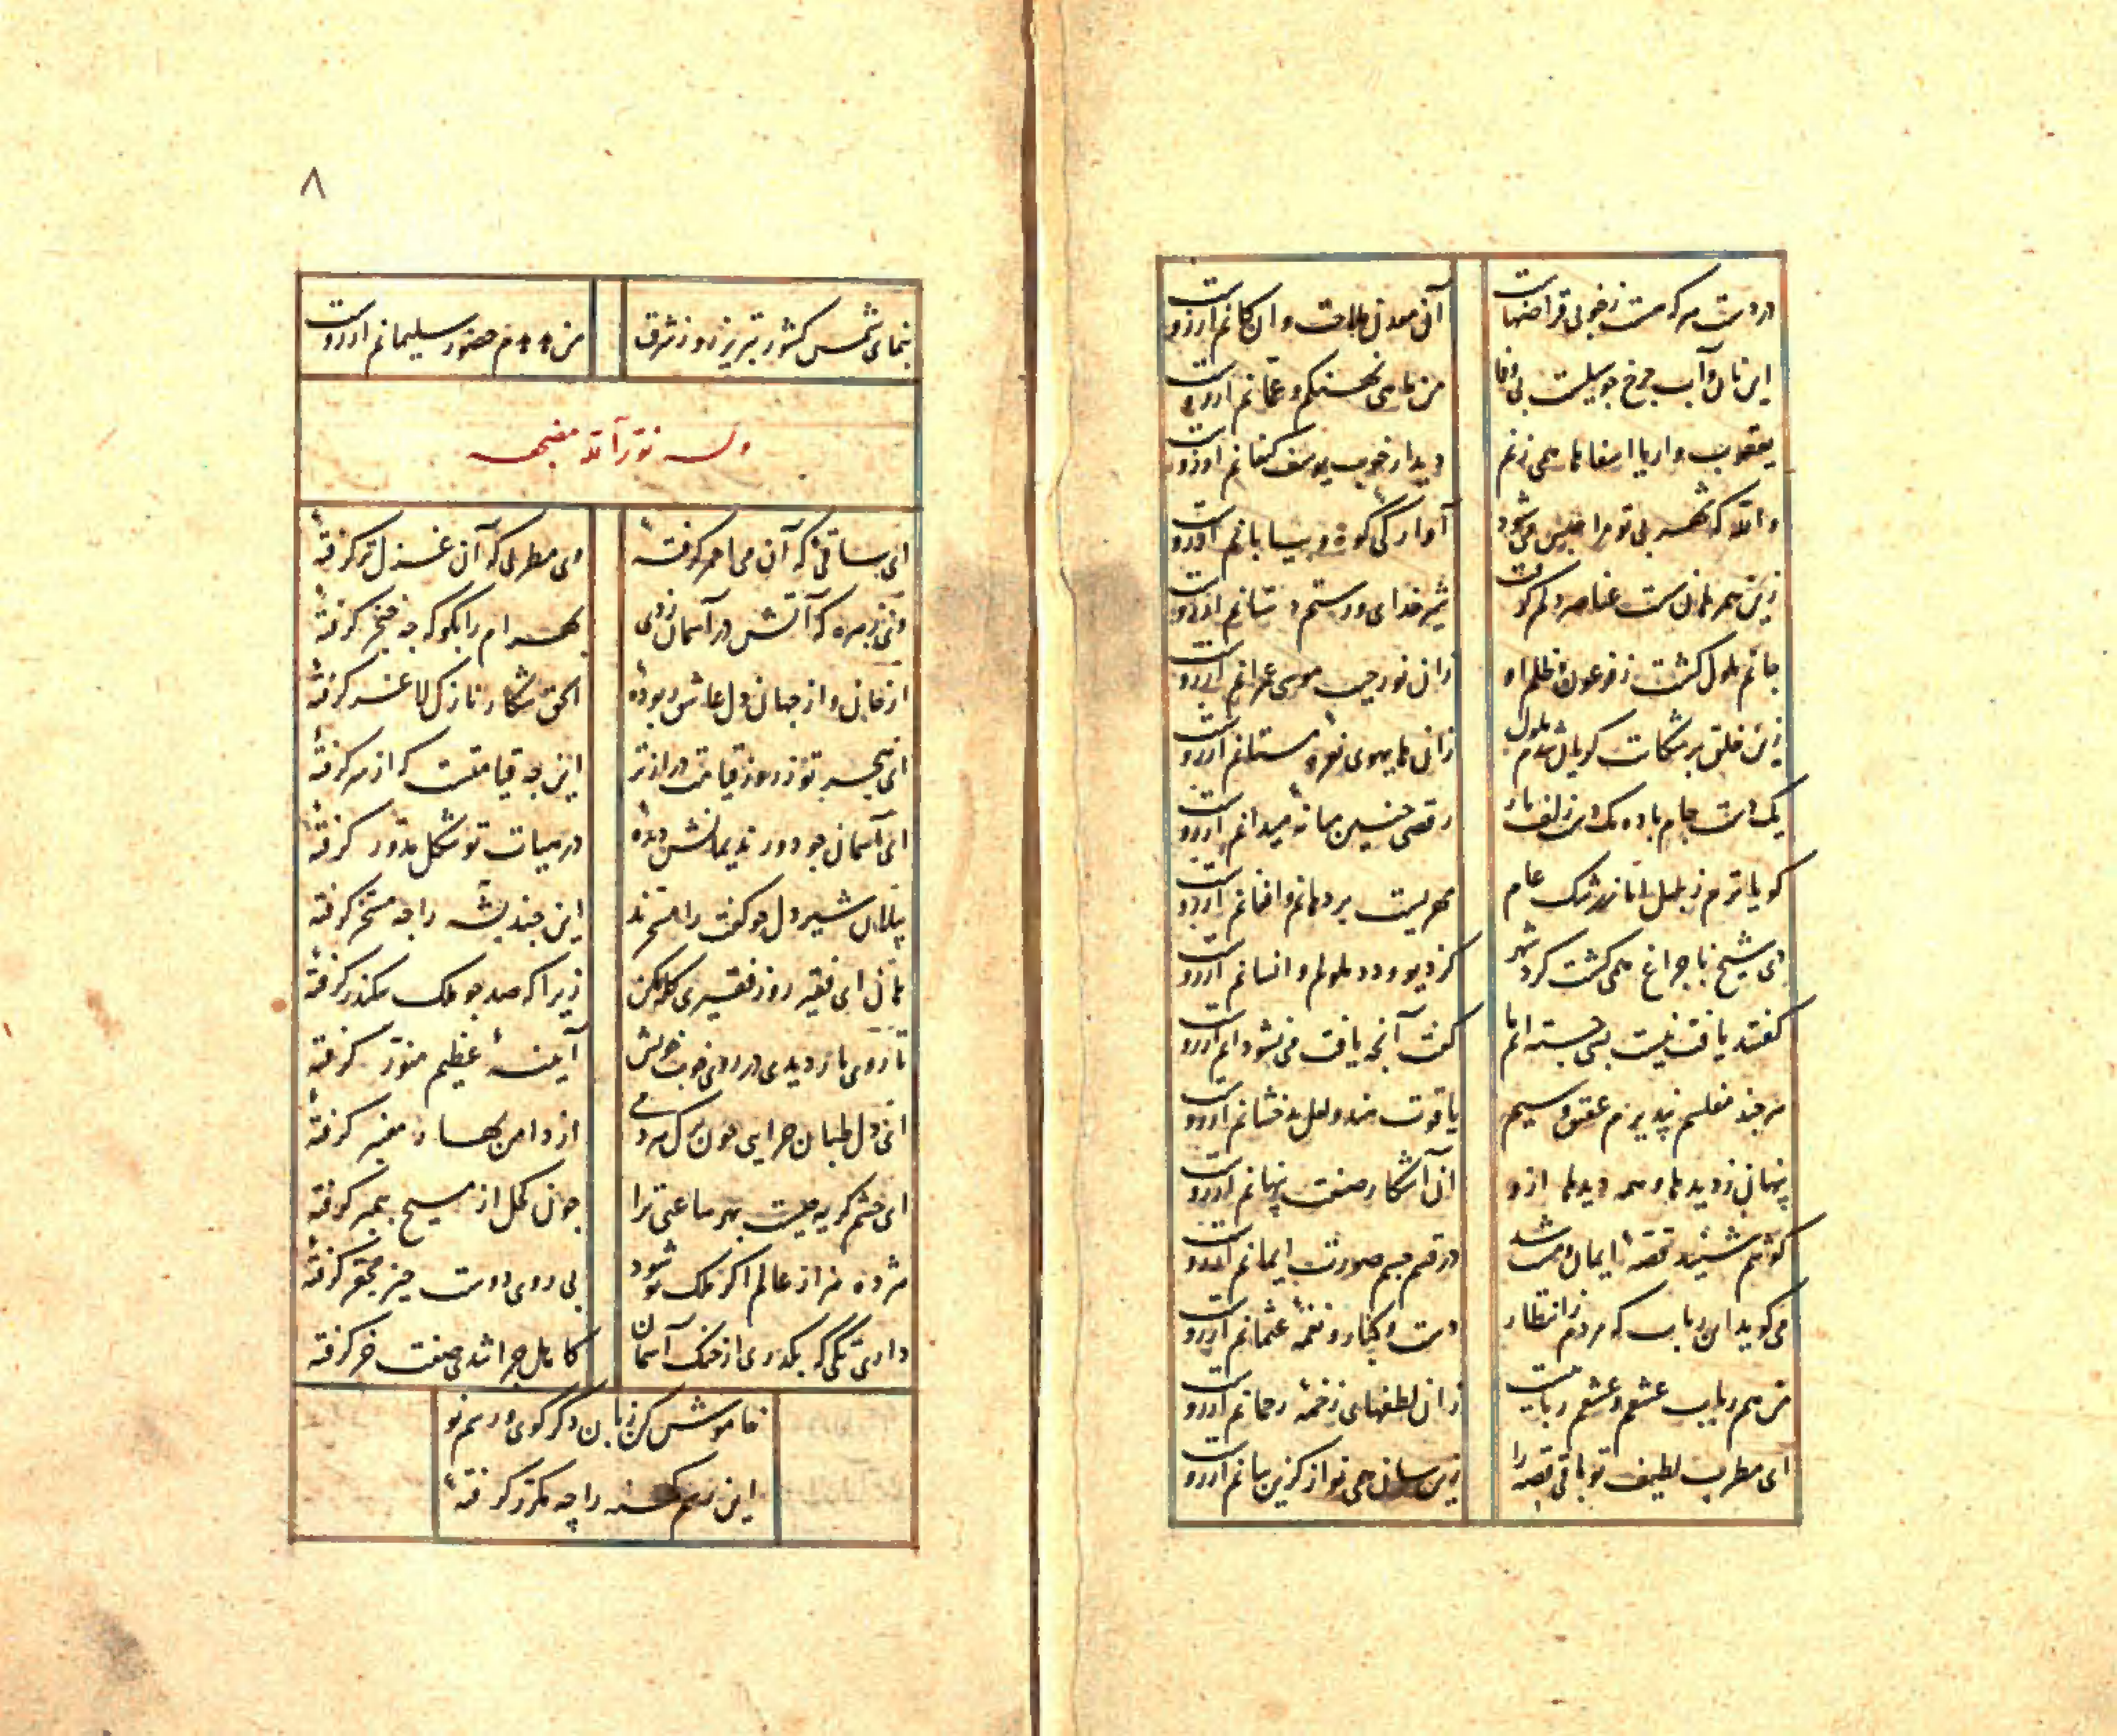 در دست هر که هست ز خوبی قراضهاست
آن معدن ملاحت و آن کانم آرزوست
این نان و آب چرخ چو سیلست بی وفا
من ماهی نهنگم و عمانم آرزوست
یعقوب وار یا اسفاها همی زنم
دیدار خوب یوسف کنعانم آرزوست
والله که شهر بی تو مرا حبس می شود
آوارگی کوه و بیابانم آرزوست
زین همرهان سست عناصر دلم گرفت
شیر خدای و رستم دستانم آرزوست
جانم ملول گشت ز فرعون و ظلم او
زان نور جیب موسی عمرانم آرزوست
زین خلق پر شکایت گریان شدم ملول
زان های هوی نعره مستانم آرزوست
یک دست جام باده یک دست زلف یار
رقصی چنین میانه میدانم آرزوست
گویاترم ز بلبل اما ز رشک عام
مهریست بر دهانم و افغانم آرزوست
دی شیخ با چراغ همی گشت گرد شهر
کز دیو و دد ملولم و انسانم آرزوست
گفتند یافت نیست بسی جسته ایم ما
گفت آنچه یافت می نشود آنم آرزوست
هر چند مفلسم نپذیرم عقیق و سیم
یاقوت هند و لعل بدخشانم آرزوست
پنهان ز دیدها و همه دیدها ازو
آن آشکار صنعت پنهانم آرزوست
گوشم شنید قصهٔ ایمان و مست شد
در قسم جسم صورت ایمانم آرزوست
می گوید این رباب که مردم ز انتظار
دست و کنار و نغمهٔ عثمانم آرزوست
من هم رباب عشقم و عشقم ربابیست
زان لطفهای زخمهٔ رحمانم آرزوست
ای مطرب لطیف تو باقی قصه را
زین سان همی نواز کزین سانم آرزوست
۸
بنمای شمس کشور تبریز رو ز شرق
من هدهدم حضور سلیمانم آرزوست
وله نور الله مضجعه
ای ساقئی که آن می احمر گرفتهٔ
وی مطربی که آن غزل تر گرفتهٔ
وی زهره که آتش در آسمان زدی
بهرام را بگو که چه خنجر گرفتهٔ
از جان و از جهان دل عاشق ربودهٔ
الحق شکار نازک لاغر گرفتهٔ
ای هجر تو ز روز قیامت درازتر
این چه قیامتست که از سر گرفتهٔ
ای آسمان چو دور ندیمانش دیدهٔ
در میان تو شکل مدور گرفتهٔ
پیلان شیر دل چو کفت را مسخرند
این چند پشه را چه مسخر گرفتهٔ
هان ای فقیر روز فقیری گله مکن
زیرا که صد چو ملک سکندر گرفتهٔ
تا روی یار دیدی در روی خوب خویش
آینهٔ عظیم منور گرفتهٔ
ای دل طپان چرایی چون برگ هر دمی
از دامن بهار معنبر گرفتهٔ
ای چشم گریه چیست بهر ساعتی ترا
چون کحل از مسیح پیمبر گرفتهٔ
مژده هزار عالم اگر ملک تو شود
بی روی دوست چیز محقر گرفتهٔ
داری تگی که بگذری از خنگ آسمان
کاهل چرا شدی صفت خر گرفتهٔ
خاموش کن زبان دگر گوی و رسم نو
این رسم کهنه را چه مکرر گرفتهٔ